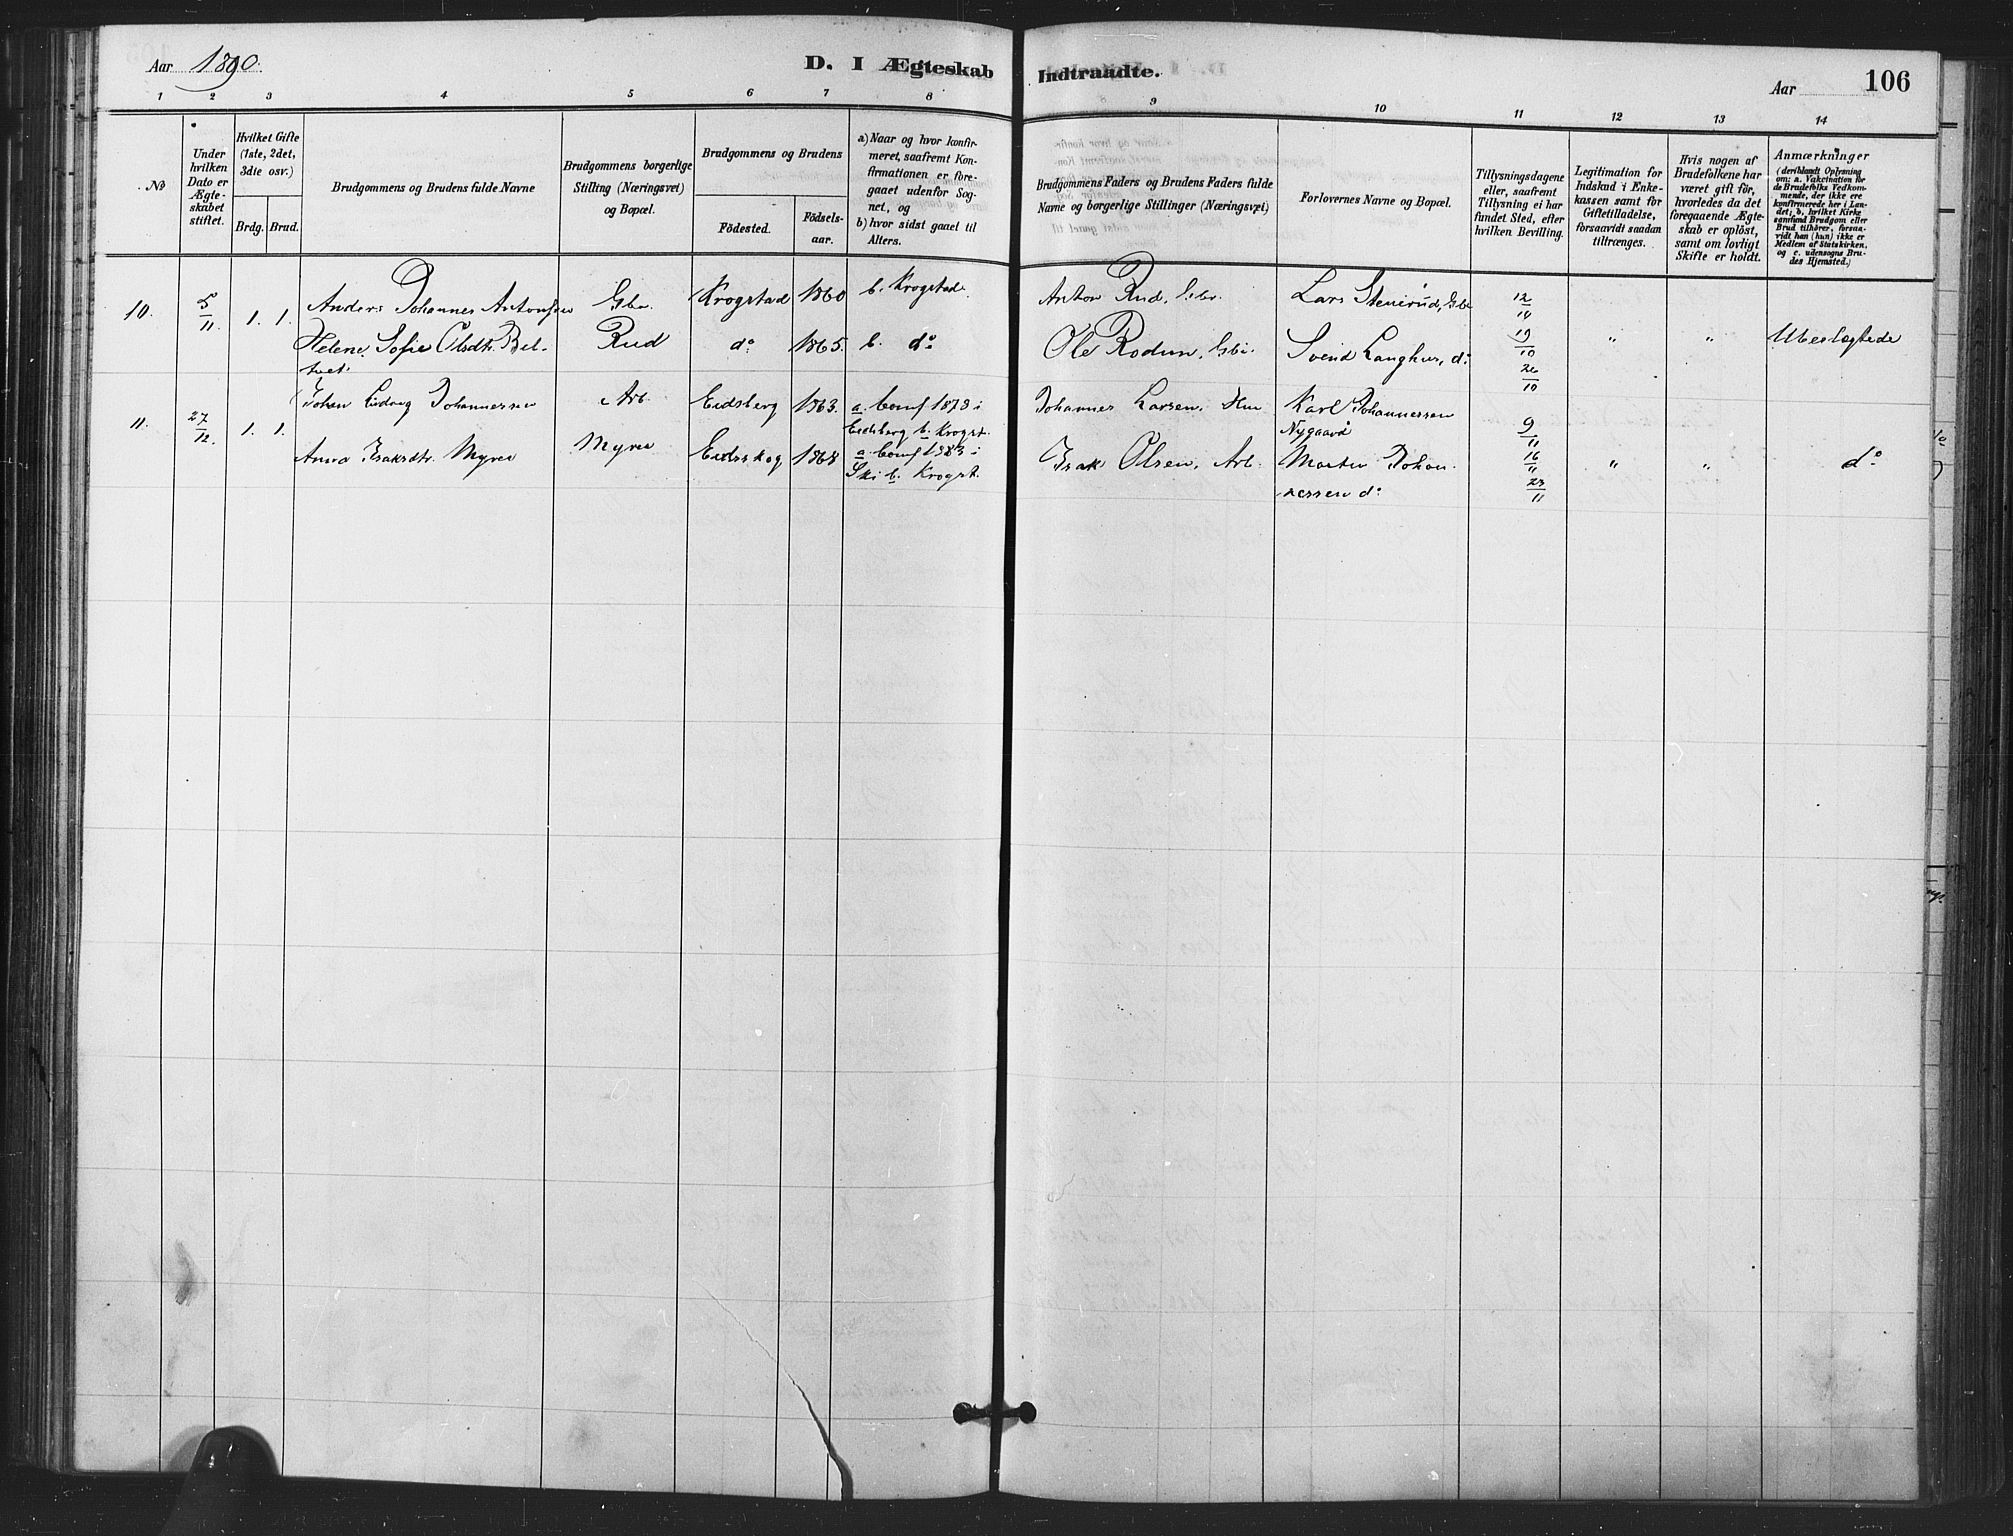 Aar 1890. D. I Ægteskab Indtraadte. Aar 106
1 2 3 4 5 6 7 8 9 10 11 12 13 14
No
Under hvilken Dato er Ægteskabet stiftet.
Hvilket Gifte (1ste, 2det, 3die osv.)
Brdg. Brud.
Brudgommens og Brudens fulde Navne
Brudgommens borgerlige Stilling (Næringsvei) og Bopæl.
Brudgommens og Brudens
Födested.
Födselsaar.
a) Naar og hvor konfirmeret, saafremt Konfirmationen er foregaaet udenfor Sognet, og
b) hvor sidst gaaet til Alters.
Brudgommens Faders og Brudens Faders fulde Navne og borgerlige Stillinger (Næringsvei)
Forlovernes Navne og Bopæl.
Tillysningsdagene eller, saafremt Tillysning ei har fundet Sted, efter hvilken Bevilling.
Legitimation for Indskud i Enkekassen samt for Giftetilladelse, forsaavidt saadan tiltrænges.
Hvis nogen af Brudefolkene har været gift för, hvorledes da det foregaaende Ægteskab er oplöst, samt om lovligt Skifte er holdt.
Anmærkninger (deriblandt Oplysning om: a. Vakcination for de Brudefolks Vedkommende, der ikke ere konfirmerede her i Landet; b. hvilket Kirkesamfund Brudgom eller Brud tilhörer, forsaavidt han (hun) ikke er Medlem af Statskirken, og c. udensogns Brudes Hjemsted.)
10. 5/11. 1. 1. Anders Johannes Antonsen Gbr. Krogstad 1860 b. Krogstad. Anton Rud, Gbr. Lars Stenerud, Gbr 12/10
Helene Sofie Olsdtr. Bel- Rud do 1865. b. do Ole Rodum, Gbr. Svend Langhus, do 19/10 " " Ubeslægtede
tvet 26/10
11. 27/12. 1. 1. Johan Ludvig Johannessen Arb. Eidsberg 1863. a. Conf 1878 i Johannes Larsen, Hm Karl Johannessen
Eidsberg b. Krogst. Nygaard 9/11
Anna Isaksdtr. Myrer Myrer Eidsskog 1868 a. Conf 1883 i Isak Olsen, Arb. Morten Johan- 16/11 " " do
Ski b. Krogst. nessen do 23/11